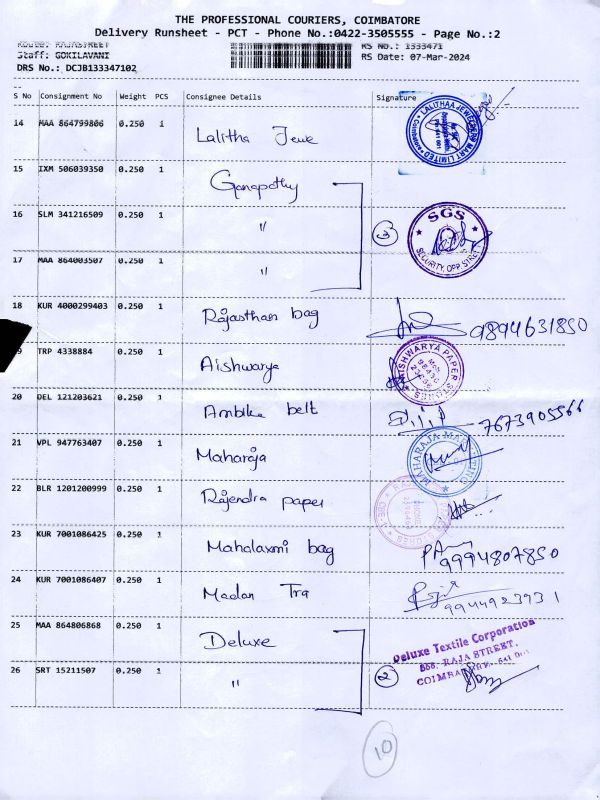 THE PROFESSIONAL COURIERS, COIMBATORE
Delivery Runsheet - PCT - Phone No.:0422-3505555 - Page No.:2
Route: RAJASTREET RS No.: 1333471
Staff: GOKILAVANI RS Date: 07-Mar-2024
DRS No.: DCJB133347102
S No Consignment No Weight PCS Consignee Details Signature
14 MAA 864799806 0.250 1 Lalitha Jewe
15 IXM 506039350 0.250 1 Ganapathy
16 SLM 341216509 0.250 1 " 3 SGS SECURITY, OPP STREET
17 MAA 864003507 0.250 1 "
18 KUR 4000299403 0.250 1 Rajasthan bag 9894631850
TRP 4338884 0.250 1 Aishwarya AISHWARYA PAPER STORES
20 DEL 121203621 0.250 1 Ambika belt 7673905566
21 VPL 947763407 0.250 1 Maharaja
22 BLR 1201200999 0.250 1 Rajendra paper
23 KUR 7001086425 0.250 1 Mahalaxmi bag 9994807850
24 KUR 7001086407 0.250 1 Madan Tra 9944923931
25 MAA 864806868 0.250 1 Deluxe Deluxe Textile Corporation
RAJA STREET,
26 SRT 15211507 0.250 1 " 2
10